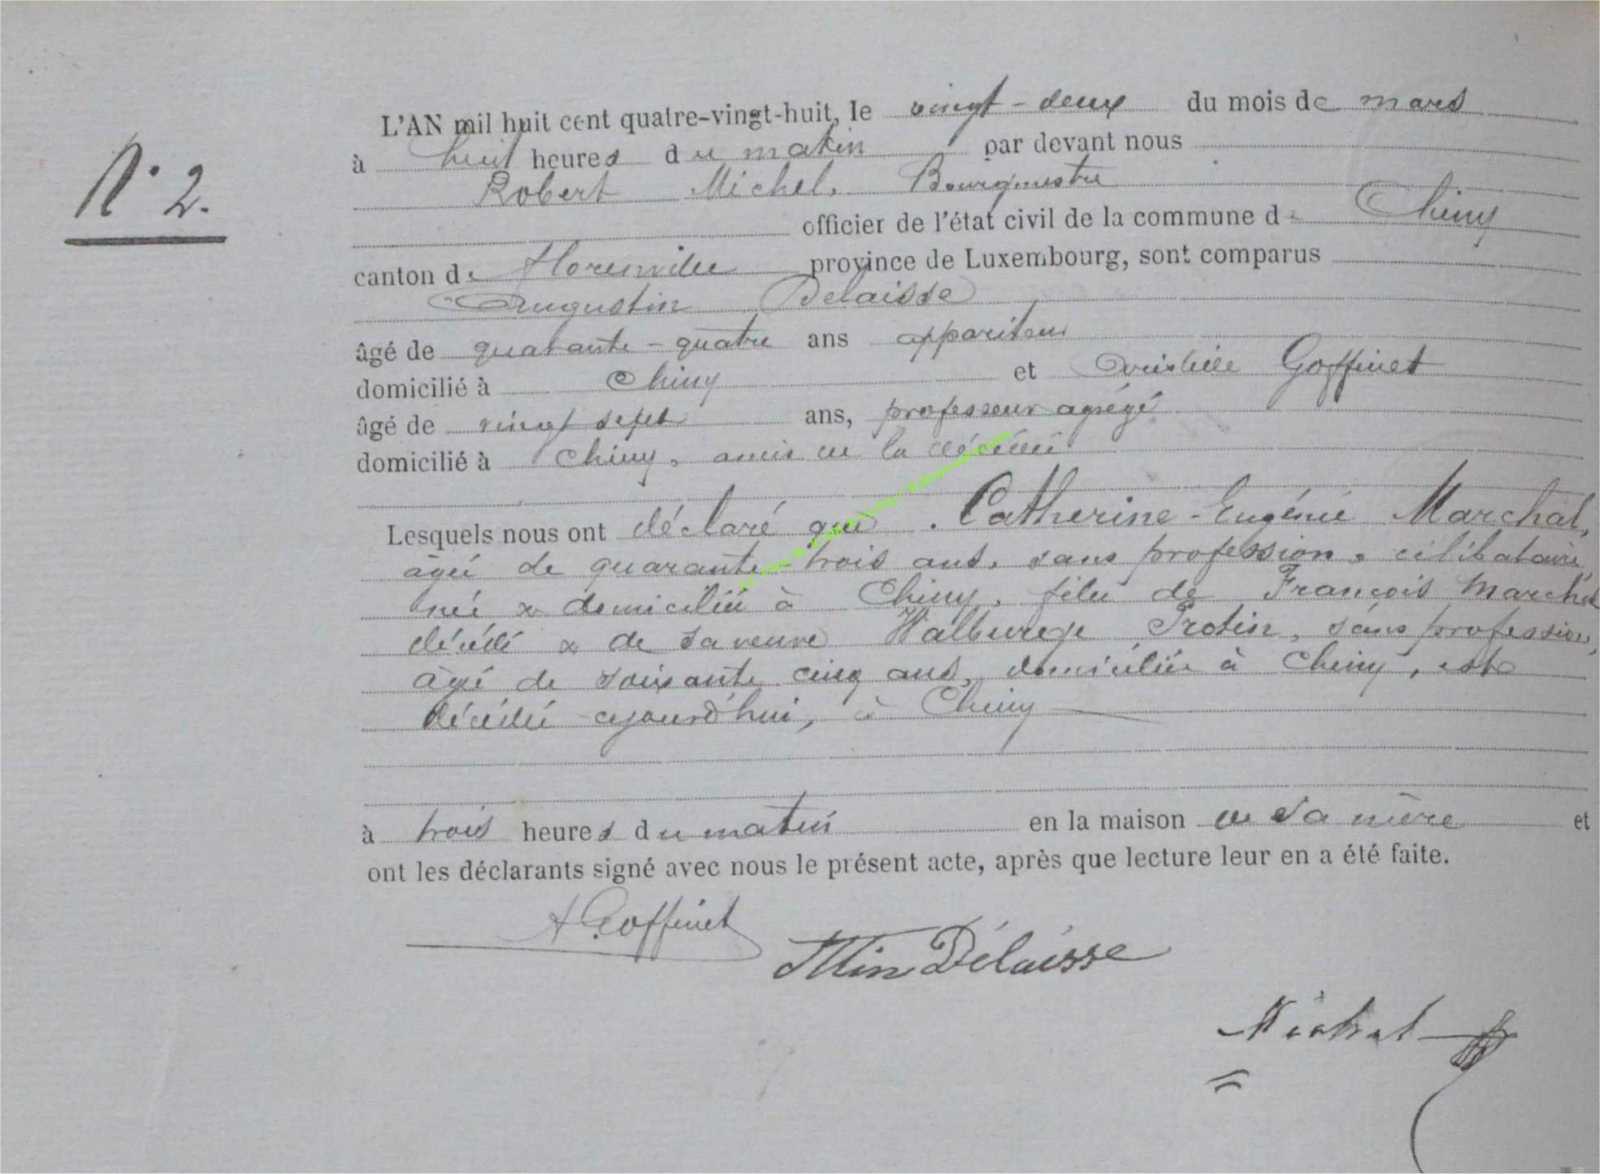 N° 2.
L'AN mil huit cent quatre-vingt-huit, le vingt-deux du mois de mars
à huit heures du matin par devant nous
Robert Michel, Bourgmestre
officier de l'état civil de la commune de Chiny
canton de Florenville province de Luxembourg, sont comparus
Augustin Delaisse
âgé de quarante-quatre ans appariteur
domicilié à Chiny et Aristide Goffinet
âgé de vingt sept ans, professeur agrégé
domicilié à Chiny, amis de la décédée
Lesquels nous ont déclaré que Catherine-Eugénie Marchal,
âgée de quarante-trois ans, sans profession, célibataire,
née & domiciliée à Chiny, fille de François Marchal
décédé & de sa veuve Walburge Protin, sans profession,
âgée de soixante cinq ans, domiciliée à Chiny, est
décédée ajourd'hui, à Chiny
à trois heures du matin en la maison de sa mère et
ont les déclarants signé avec nous le présent acte, après que lecture leur en a été faite.
A Goffinet
Délaisse
Michel